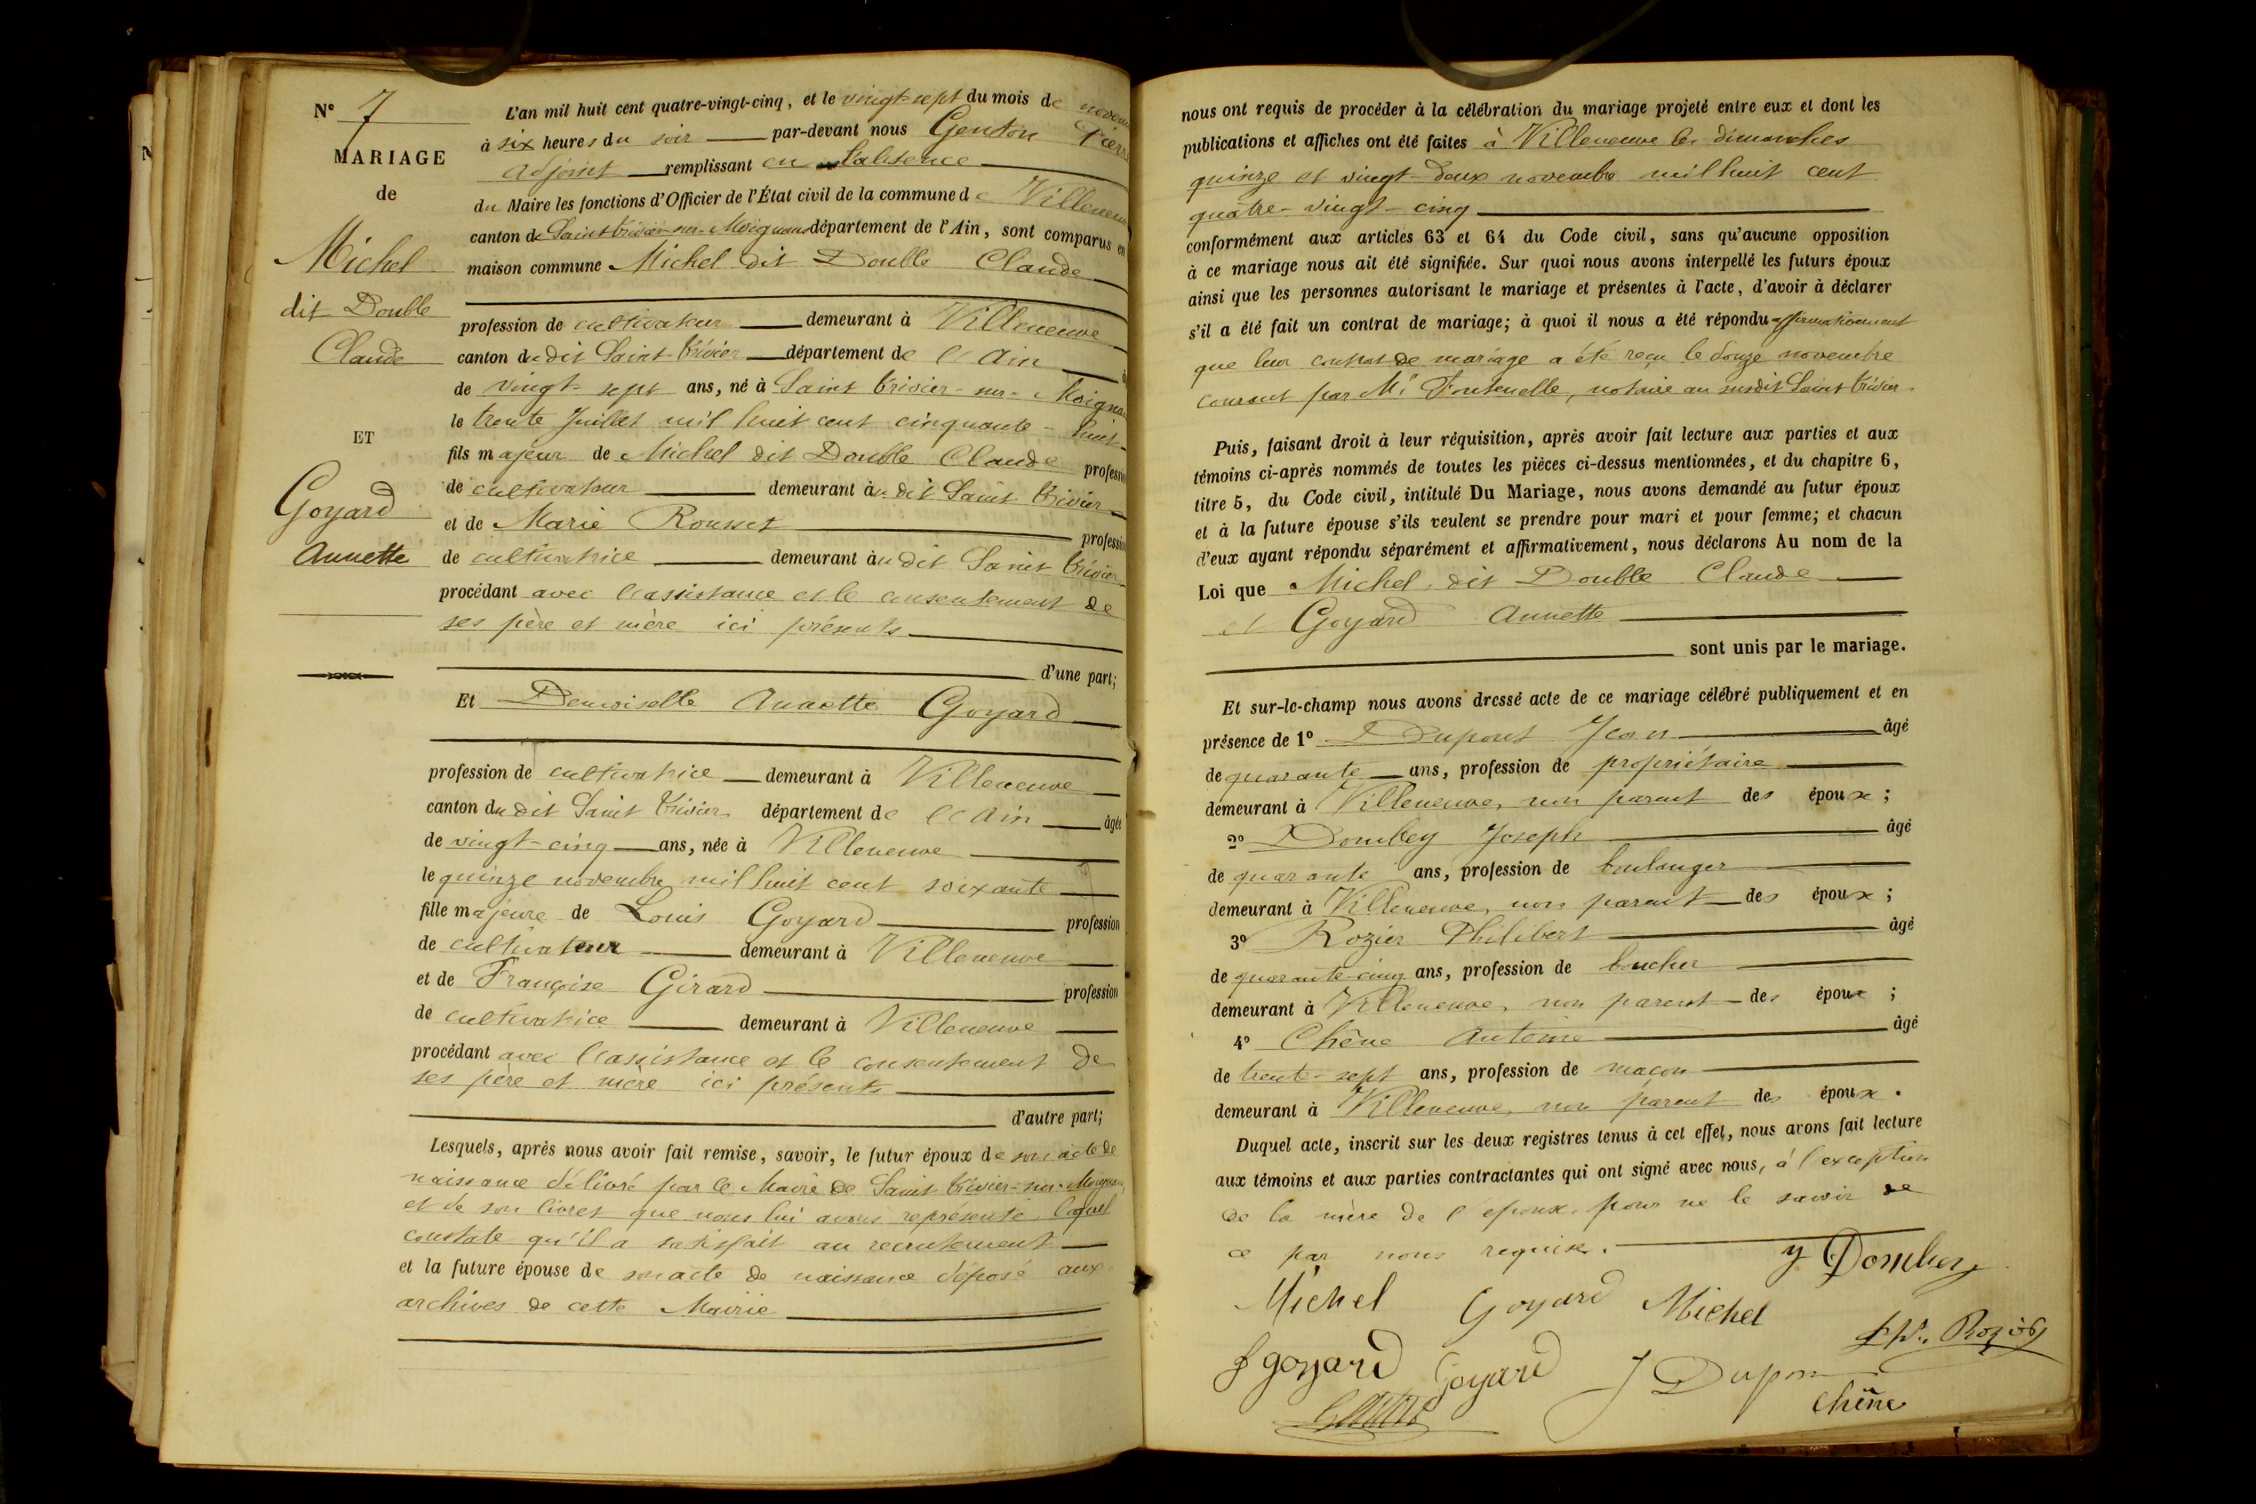 N° 7
MARIAGE
de
Michel
dit Double
Claude
ET
Goyard
Annette
L'an mil huit cent quatre-vingt-cinq, et le vingt-sept du mois de novem
à six heures du soir par-devant nous Genton Pierre
adjoint remplissant en l'absence
du Maire les fonctions d'Officier de l'État civil de la commune de Villeneuve
canton de Saint-Trivier-sur-Moignans département de l'Ain, sont comparus en
maison commune Michel dit Double Claude
profession de cultivateur demeurant à Villeneuve
canton du dit Saint-Trivier département de l'Ain
de vingt-sept ans, né à Saint Trivier-sur-Moignans
le trente Juillet mil huit cent cinquante-huit
fils majeur de Michel dit Double Claude profession
de cultivateur demeurant au dit Saint Trivier
et de Marie Rousset profession
de cultivatrice demeurant au dit Saint Trivier
procédant avec l'assistance et le consentement de
ses père et mère ici présents
d'une part;
Et Demoiselle Annette Goyard
profession de cultivatrice demeurant à Villeneuve
canton du dit Saint Trivier département de l'Ain âgée
de vingt-cinq ans, née à Villeneuve
le quinze novembre mil huit cent soixante
fille majeure de Louis Goyard profession
de cultivateur demeurant à Villeneuve
et de Françoise Girard profession
de cultivatrice demeurant à Villeneuve
procédant avec l'assistance et le consentement de
ses père et mère ici présents
d'autre part;
Lesquels, après nous avoir fait remise, savoir, le futur époux de son acte de
naissance délivré par le Maire de Saint Trivier-sur-Moignans
et de son livret que nous lui avons représenté, lequel
constate qu'il a satisfait au recrutement
et la future épouse de son acte de naissance déposé aux
archives de cette Mairie
nous ont requis de procéder à la célébration du mariage projeté entre eux et dont les
publications et affiches ont été faites à Villeneuve les dimanches
quinze et vingt-deux novembre mil huit cent
quatre-vingt-cinq
conformément aux articles 63 et 64 du Code civil, sans qu'aucune opposition
à ce mariage nous ait été signifiée. Sur quoi nous avons interpellé les futurs époux
ainsi que les personnes autorisant le mariage et présentes à l'acte, d'avoir à déclarer
s'il a été fait un contrat de mariage; à quoi il nous a été répondu affirmativement
que leur contrat de mariage a été reçu le douze novembre
courant par Me Fontenelle, notaire au susdit Saint Trivier.
Puis, faisant droit à leur réquisition, après avoir fait lecture aux parties et aux
témoins ci-après nommés de toutes les pièces ci-dessus mentionnées, et du chapitre 6,
titre 5, du Code civil, intitulé Du Mariage, nous avons demandé au futur époux
et à la future épouse s'ils veulent se prendre pour mari et pour femme; et chacun
d'eux ayant répondu séparément et affirmativement, nous déclarons Au nom de la
Loi que Michel dit Double Claude
et Goyard Annette
sont unis par le mariage.
Et sur-le-champ nous avons dressé acte de ce mariage célébré publiquement et en
présence de 1° Dupont Jean âgé
de quarante ans, profession de propriétaire
demeurant à Villeneuve, non parent des époux;
2° Dombey Joseph âgé
de quarante ans, profession de boulanger
demeurant à Villeneuve, non parent des époux;
3° Rozier Philibert âgé
de quarante-cinq ans, profession de boucher
demeurant à Villeneuve, non parent des époux;
4° Chêne Antoine âgé
de trente-sept ans, profession de maçon
demeurant à Villeneuve, non parent des époux.
Duquel acte, inscrit sur les deux registres tenus à cet effet, nous avons fait lecture
aux témoins et aux parties contractantes qui ont signé avec nous, à l'exception
de la mère de l'époux, pour ne le savoir de
ce par nous requise.
J Dombey
Michel Goyard Michel
Ph. Rozier
f goyard Goyard J Dupon
Chêne
Genton